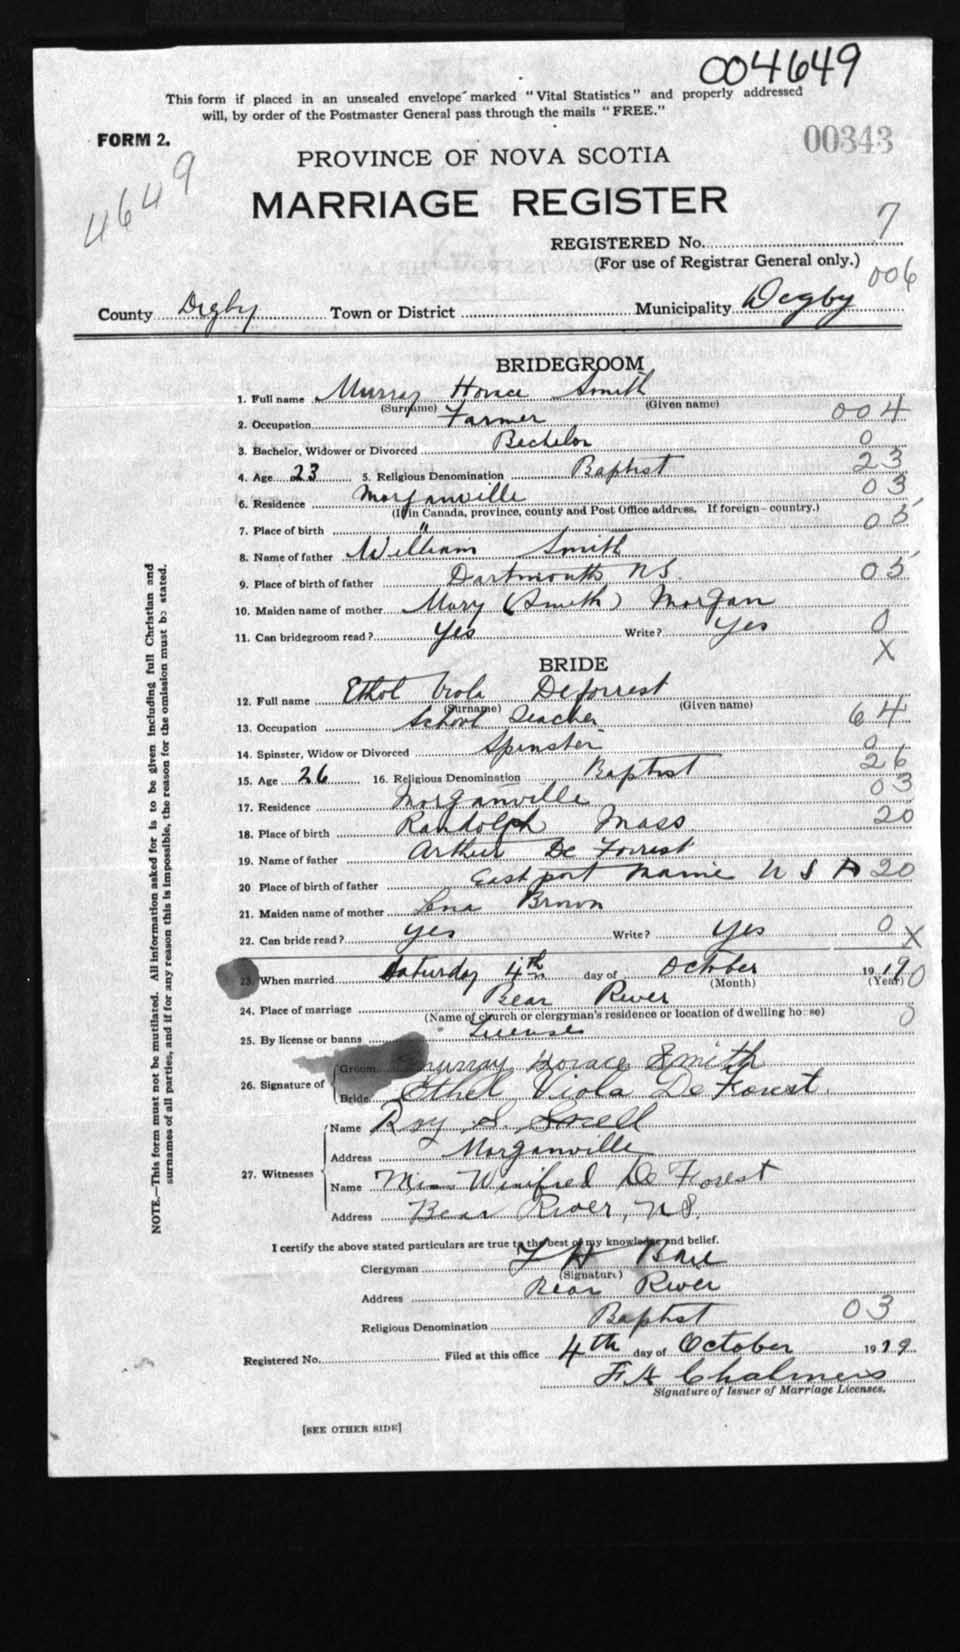 004649
This form if placed in an unsealed envelope marked "Vital Statistics" and properly addressed
will, by order of the Postmaster General pass through the mails "FREE."
FORM 2.
00343
4649
PROVINCE OF NOVA SCOTIA
MARRIAGE REGISTER
REGISTERED No. 7
(For use of Registrar General only.)
006
County Digby Town or District Municipality Digby
BRIDEGROOM
1. Full name Murray Horace Smith
(Surname) (Given name)
2. Occupation Farmer 004
3. Bachelor, Widower or Divorced Bachelor 0
4. Age 23 5. Religious Denomination Baptist 23
6. Residence Morganville 03
(If in Canada, province, county and Post Office address. If foreign—country.)
7. Place of birth " 05
8. Name of father William Smith
9. Place of birth of father Dartmouth N.S. 05
10. Maiden name of mother Mary (Smith) Morgan
11. Can bridegroom read? Yes Write? Yes 0
X
BRIDE
12. Full name Ethel Viola Deforrest
(Surname) (Given name)
13. Occupation School Teacher 64
14. Spinster, Widow or Divorced Spinster 0
15. Age 26 16. Religious Denomination Baptist 26
17. Residence Morganville 03
18. Place of birth Randolph Mass 20
19. Name of father Arthur De Forrest
20 Place of birth of father Eastport Maine U S A 20
21. Maiden name of mother Lena Brown
22. Can bride read? yes Write? Yes 0 X
23. When married Saturday 4th day of October 1919 0
(Month) (Year)
24. Place of marriage Bear River
(Name of church or clergyman's residence or location of dwelling house) 0
25. By license or banns License
26. Signature of Groom Murray Horace Smith
Bride Ethel Viola DeForest.
27. Witnesses Name Roy S.
Address Morganville
Name Miss Winifred De Forest
Address Bear River, N.S.
I certify the above stated particulars are true to the best of my knowledge and belief.
Clergyman
(Signature)
Address Bear River
Religious Denomination Baptist 03
Registered No. Filed at this office 4th day of October 1919
F.A. Chalmers
Signature of Issuer of Marriage Licenses.
[SEE OTHER SIDE]
NOTE.—This form must not be mutilated. All information asked for is to be given including full Christian and
surnames of all parties, and if for any reason this is impossible, the reason for the omission must be stated.